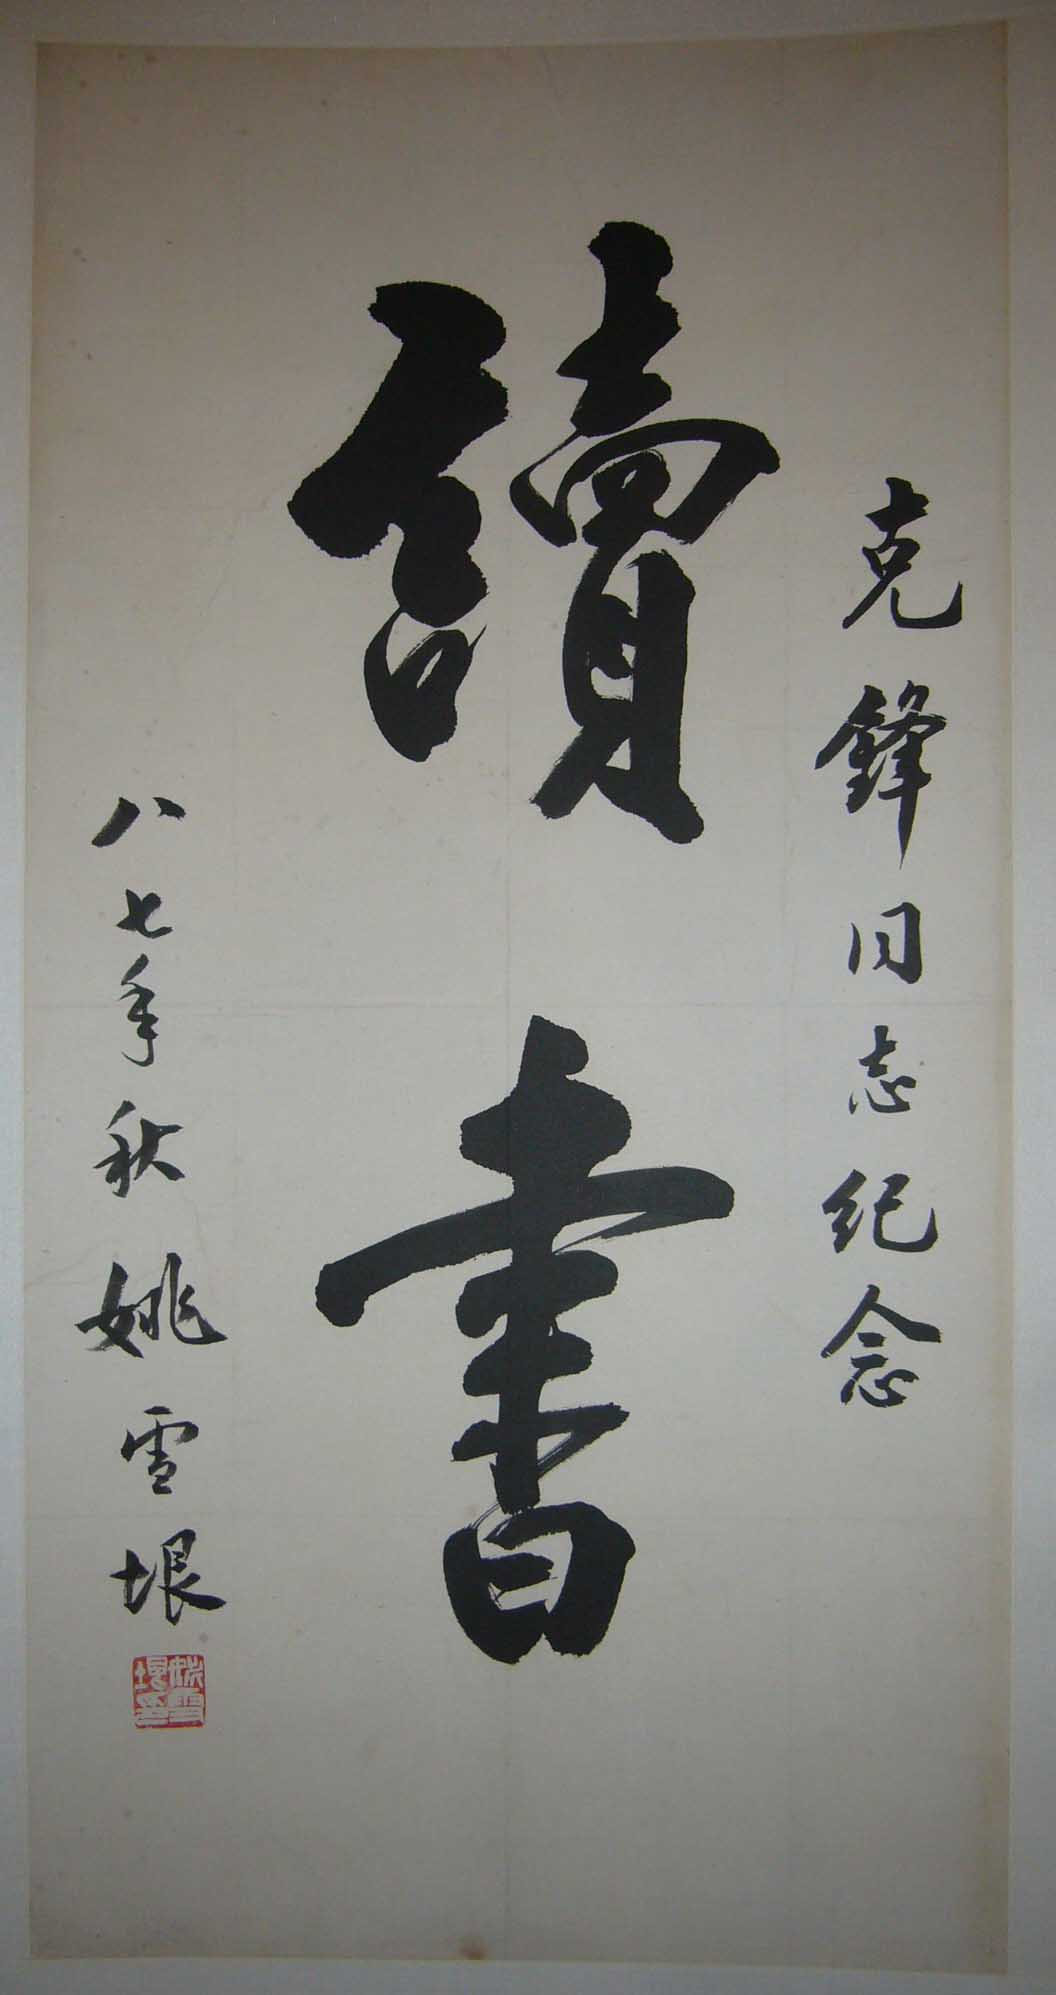 克鋒同志纪念
讀書
八七年秋姚雪垠
姚雪垠印